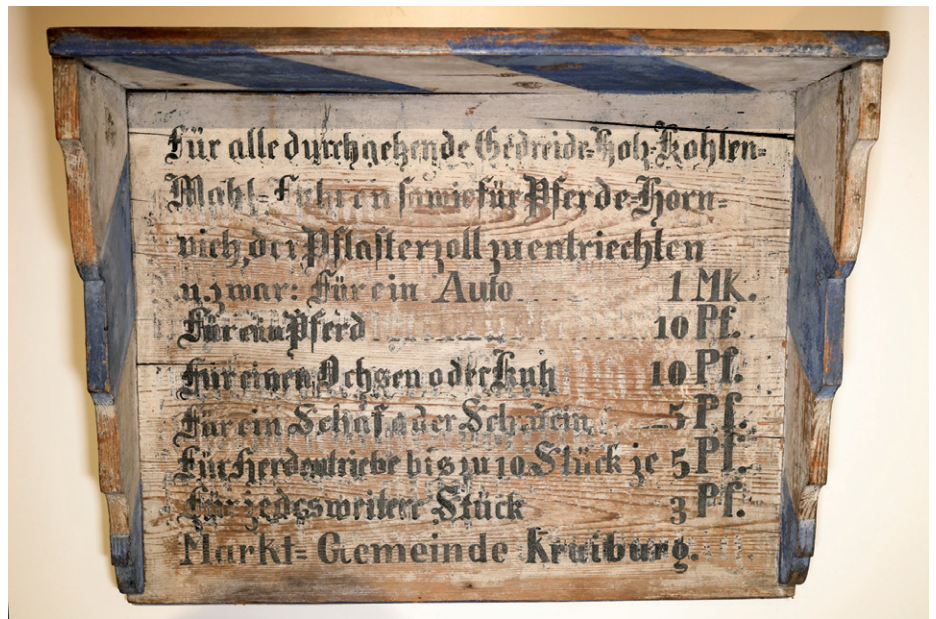 Für alle durchgehende Gedreide-Holz-Kohlen=
Mahl=Fuhren sowie für Pferde-Horn=
vieh, der Pflasterzoll zu entriechten
u. zwar: Für ein Auto 1 MK.
Für ein Pferd 10 Pf.
Für einen Ochsen oder Kuh 10 Pf.
Für ein Schaf oder Schwein 5 Pf.
Für Herdentriebe bis zu 10 Stück je 5 Pf.
Für jedes weitere Stück 3 Pf.
Markt=Gemeinde Kraiburg.